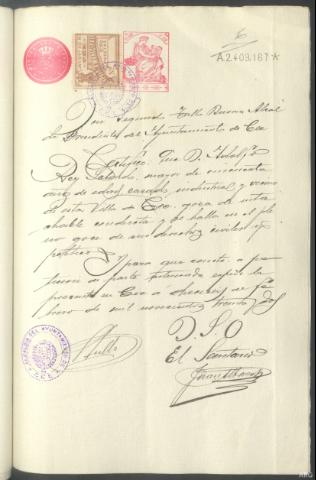 A.2.409.167*
Don Segundo Trillo Buena Alcal
de Presidente del Ayuntamiento de Cee
Certifico: Que D. Adolfo
Rey mayor de cincuenta
años de edad, casado, industrial y vecino
de esta Villa de Cee, goza de inta
chable conducta y se halla en el ple
no goce de sus derechos civiles y
políticos.
Y para que conste a pe
tición de parte interesada expido la
presente en Cee a de
brero de mil novecientos treinta y dos
D. S. O
El Secretario
Trillo